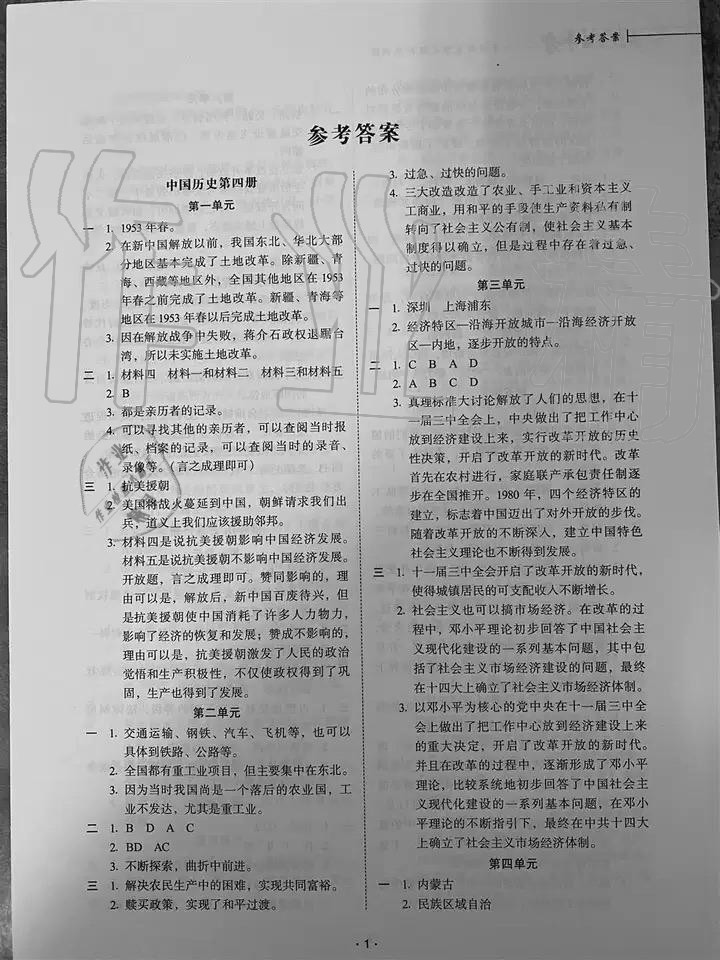 参考答案
参考答案
中国历史第四册
第一单元
一 1. 1953年春。
2. 在新中国解放以前，我国东北、华北大部
分地区基本完成了土地改革。除新疆、青
海、西藏等地区外，全国其他地区在1953
年春之前完成了土地改革。新疆、青海等
地区在1953年春以后完成土地改革。
3. 因在解放战争中失败，蒋介石政权退踞台
湾，所以未实施土地改革。
二 1. 材料四 材料一和材料二 材料三和材料五
2. B
3. 都是亲历者的记录。
4. 可以寻找其他的亲历者，可以查阅当时报
纸、档案的记录，可以查阅当时的录音、
录像等。（言之成理即可）
三 1. 抗美援朝
2. 美国将战火蔓延到中国，朝鲜请求我们出
兵，道义上我们应该援助邻邦。
3. 材料四是说抗美援朝不影响中国经济发展。
材料五是说抗美援朝影响中国经济发展。
开放题，言之成理即可。赞同影响的，理
由可以是，解放后，新中国百废待兴，但
是抗美援朝使中国消耗了许多人力物力，
影响了经济的恢复和发展；赞成不影响的，
理由可以是，抗美援朝激发了人民的政治
觉悟和生产积极性，不仅使政权得到了巩
固，生产也得到了发展。
第二单元
一 1. 交通运输、钢铁、汽车、飞机等，也可以
具体到铁路、公路等。
2. 全国都有重工业项目，但主要集中在东北。
3. 因为当时我国尚是一个落后的农业国，工
业不发达，尤其是重工业。
二 1. B D A C
2. BD AC
3. 不断探索，曲折中前进。
三 1. 解决农民生产中的困难，实现共同富裕。
2. 赎买政策，实现了和平过渡。
3. 过急、过快的问题。
4. 三大改造改造了农业、手工业和资本主义
工商业，用和平的手段使生产资料私有制
转向了社会主义公有制，使社会主义基本
制度得以确立，但是过程中存在着过急、
过快的问题。
第三单元
一 1. 深圳 上海浦东
2. 经济特区—沿海开放城市—沿海经济开放
区—内地，逐步开放的特点。
二 1. C B A D
2. A B C D
3. 真理标准大讨论解放了人们的思想，在十
一届三中全会上，中央做出了把工作中心
放到经济建设上来，实行改革开放的历史
性决策，开启了改革开放的新时代。改革
首先在农村进行，家庭联产承包责任制逐
步在全国推开。1980年，四个经济特区的
建立，标志着中国迈出了对外开放的步伐。
随着改革开放的不断深入，建立中国特色
社会主义理论也不断得到发展。
三 1. 十一届三中全会开启了改革开放的新时代，
使得城镇居民的可支配收入不断增长。
2. 社会主义也可以搞市场经济。在改革的过
程中，邓小平理论初步回答了中国社会主
义现代化建设的一系列基本问题，其中包
括了社会主义市场经济建设的问题，最终
在十四大上确立了社会主义市场经济体制。
3. 以邓小平为核心的党中央在十一届三中全
会上做出了把工作中心放到经济建设上来
的重大决定，开启了改革开放的新时代。
并且在改革的过程中，逐渐形成了邓小平
理论，比较系统地初步回答了中国社会主
义现代化建设的一系列基本问题，在邓小
平理论的不断指引下，最终在中共十四大
上确立了社会主义市场经济体制。
第四单元
一 1. 内蒙古
2. 民族区域自治
· 1 ·